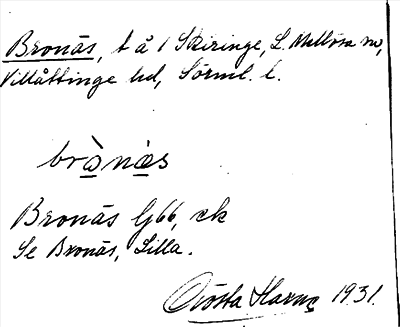 Bronäs, t å 1 Skiringe, L. Mellösa sn,
Villåttinge hd, Sörml. l.
bròn
Bronäs G66, ek
Se Bronäs, Lilla.
Gösta 1931.